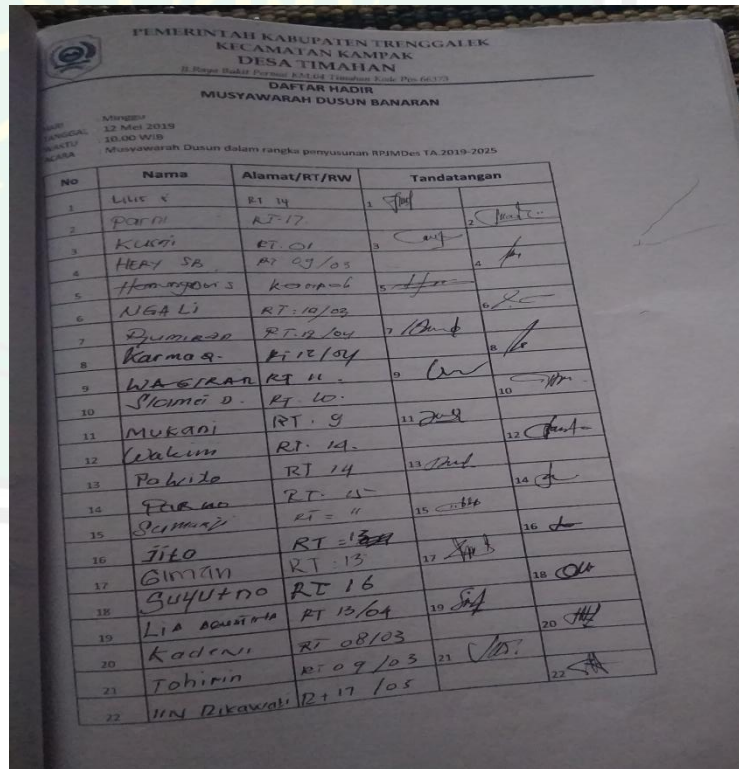 PEMERINTAH KABUPATEN TRENGGALEK
KECAMATAN KAMPAK
DESA TIMAHAN
Jl.Raya Bukit Permai KM.04 Timahan Kode Pos 66373
DAFTAR HADIR
MUSYAWARAH DUSUN BANARAN
HARI : Minggu
TANGGAL : 12 Mei 2019
WAKTU : 10.00 WIB
ACARA : Musyawarah Dusun dalam rangka penyusunan RPJMDes TA.2019-2025
No Nama Alamat/RT/RW Tandatangan
1 Lilis RT 14 1
2 Parni RT.17 2
3 RT.01 3
4 HERY SB RT 09/03 4
5 5
6 NGALI RT:10/03 6
7 RT.12/04 7
8 Karma RT 12/04 8
9 WAGIRAN RT 11. 9
10 Slamet D. RT. 10. 10
11 MUKANI RT. 9 11
12 Wakim RT. 14. 12
13 RT 14 13
14 RT. 15 14
15 RT = " 15
16 JITO RT = 13 16
17 GIMAN RT : 13 17
18 SUYUTNO RT 16 18
19 LIA AGUSTINA RT 13/04 19
20 Kadeni RT 08/03 20
21 Tohirin RT 09/03 21
22 RT 17/05 22